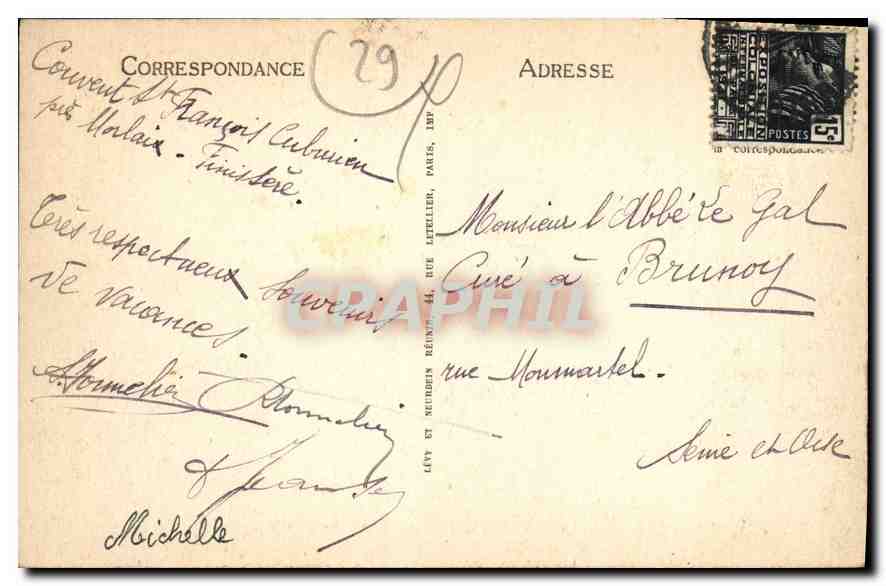 CORRESPONDANCE
29
Couvent St François Cuburien
près Morlaix - Finistère.
Très respectueux souvenirs
de vacances.
Michelle
LÉVY ET NEURDEIN RÉUNIS, 44, RUE LETELLIER, PARIS, IMP
ADRESSE
EXPOSITION
COLONIALE
POSTES 15c
la correspondance
Monsieur l'Abbé Le Gal
Curé à Brunoy
rue Monmartel -
Seine et Oise
CPAPHIL